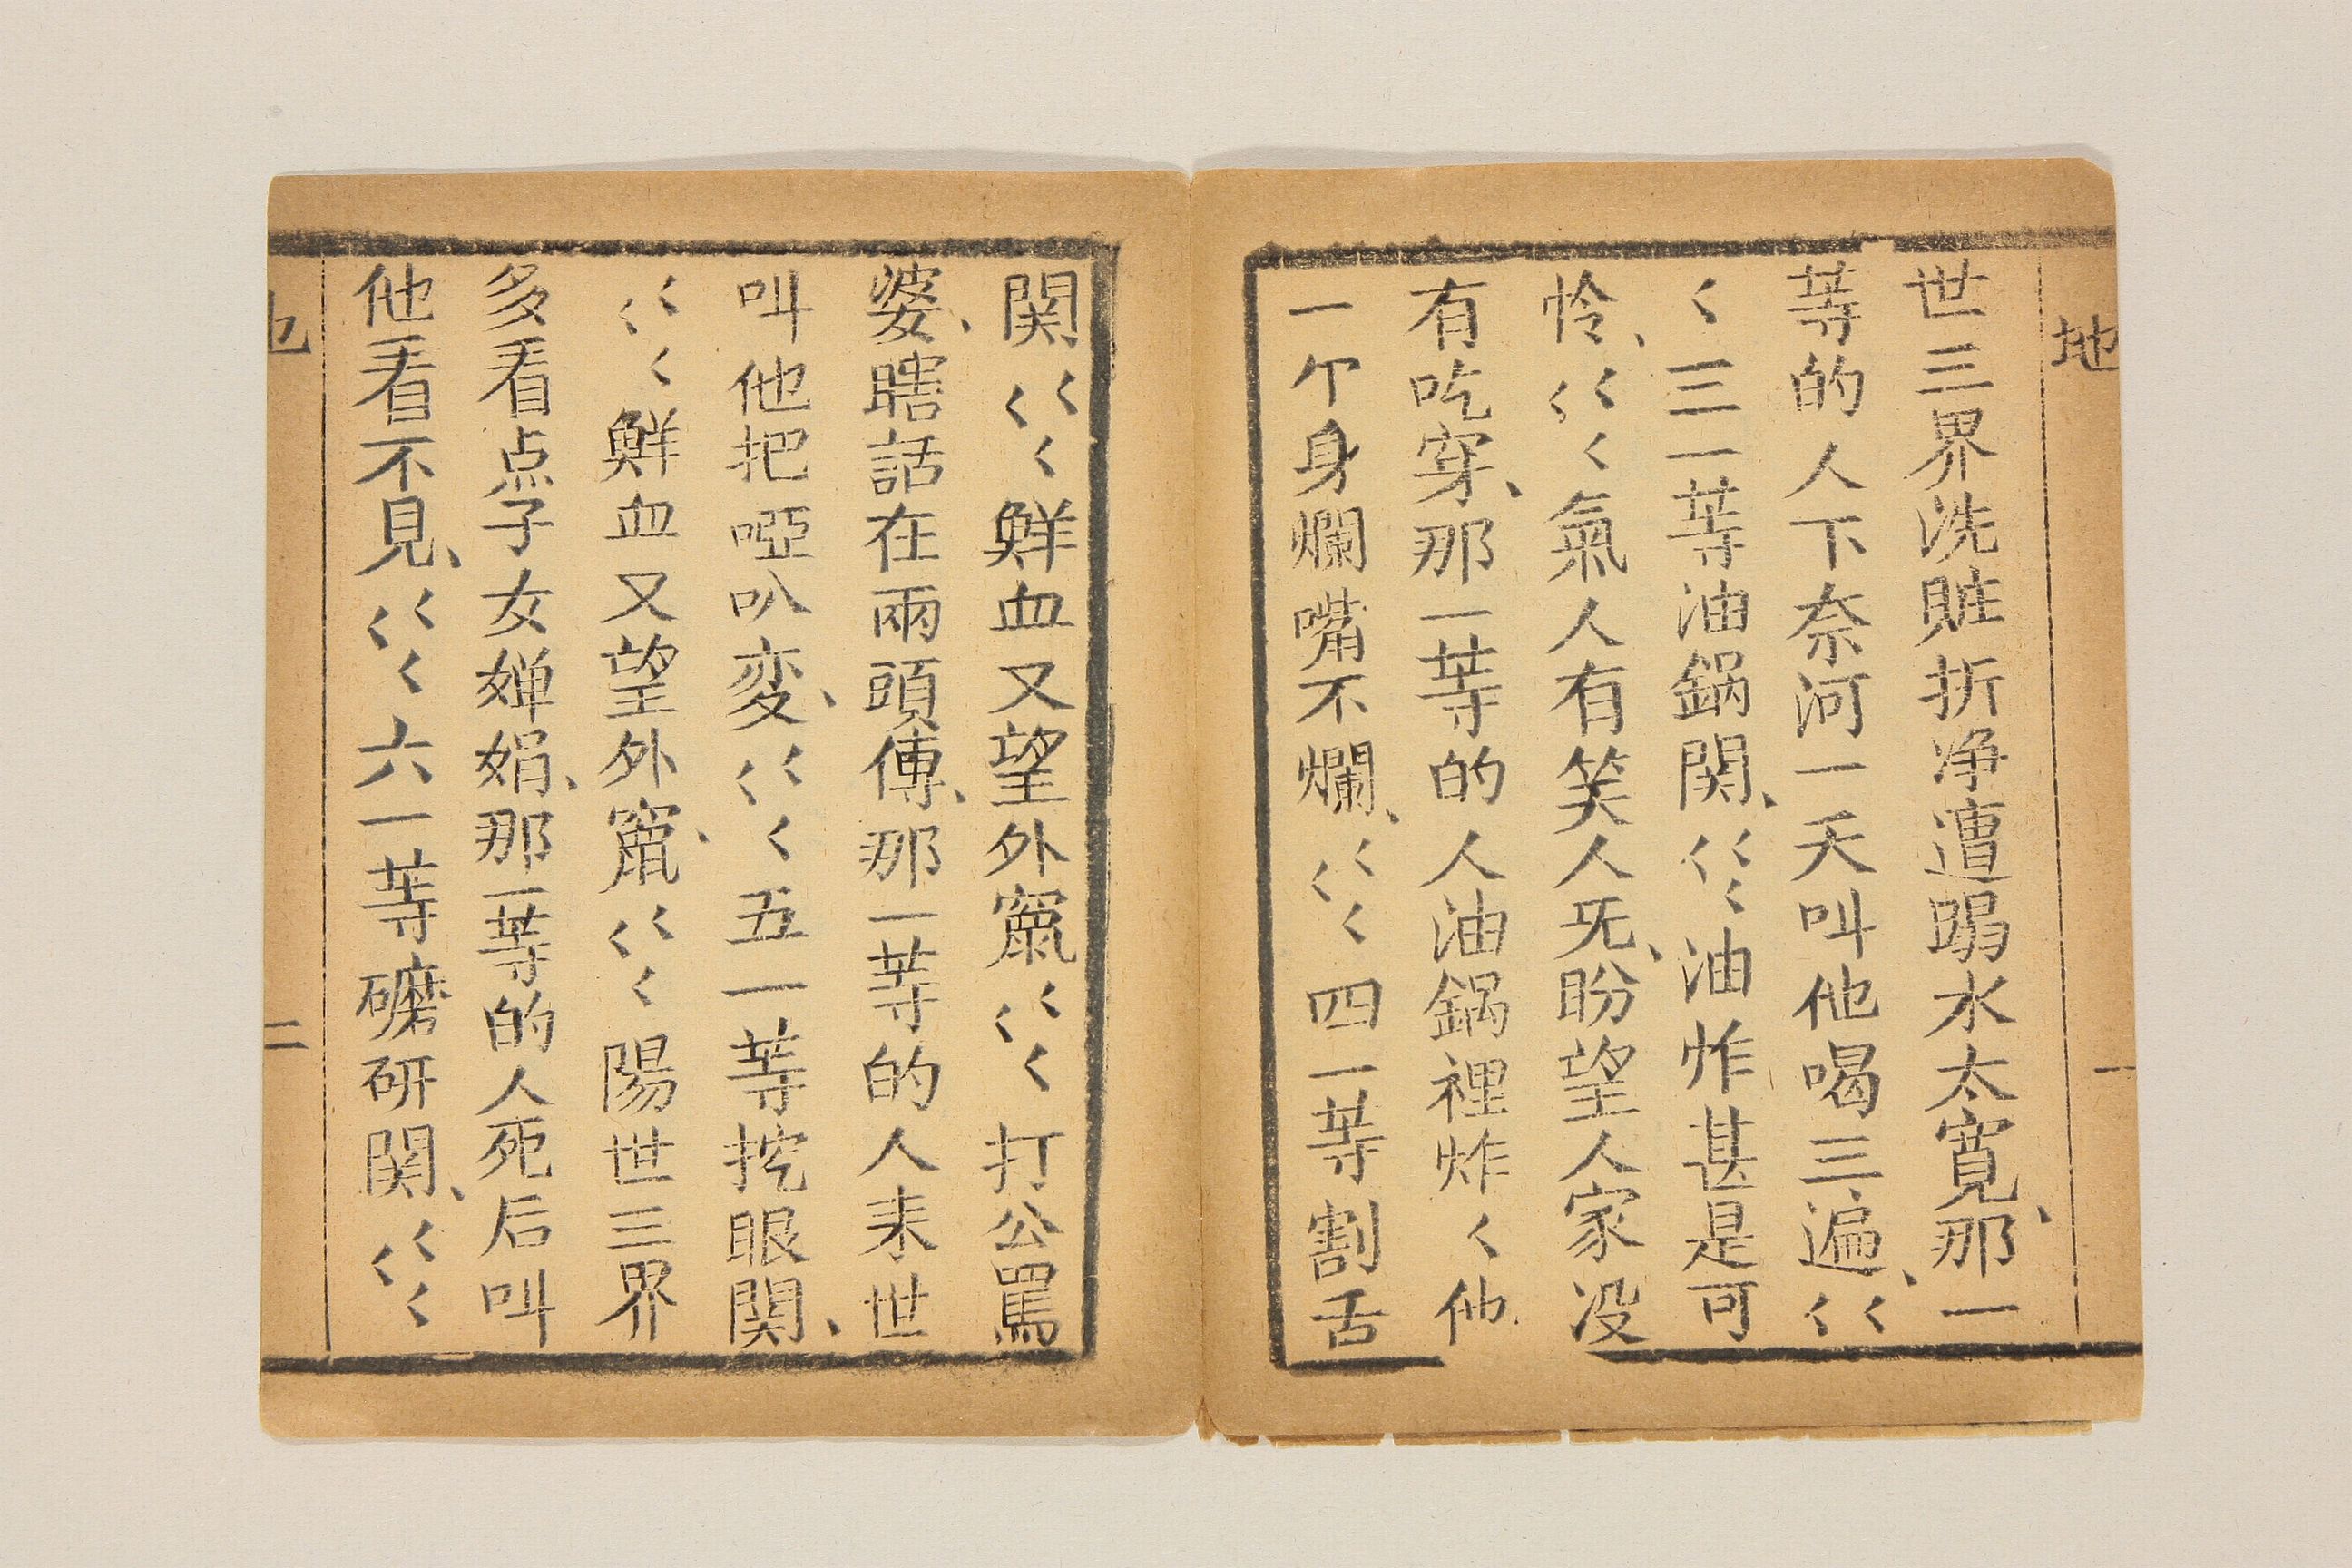 地
一
世三界洗賍折净遭弱水太寬、那一
等的人下奈河一天叫他喝三遍、〱〱
〱三一等油鍋関、〱〱〱油炸甚是可
怜、〱〱〱氣人有笑人旡、盼望人家没
有吃穿、那一等的人油鍋裡炸〱他
一个身爛嘴不爛、〱〱〱四一等割舌
関〱〱〱鮮血又望外竄〱〱〱打公罵
婆、瞎話在兩頭傳、那一等的人耒世
叫他把啞叭変、〱〱〱五一等挖眼関、
〱〱〱鮮血又望外竄、〱〱〱陽世三界
多看点子女婵娟、那一等的人死后叫
他看不見、〱〱〱六一等礳研関、〱〱〱
二